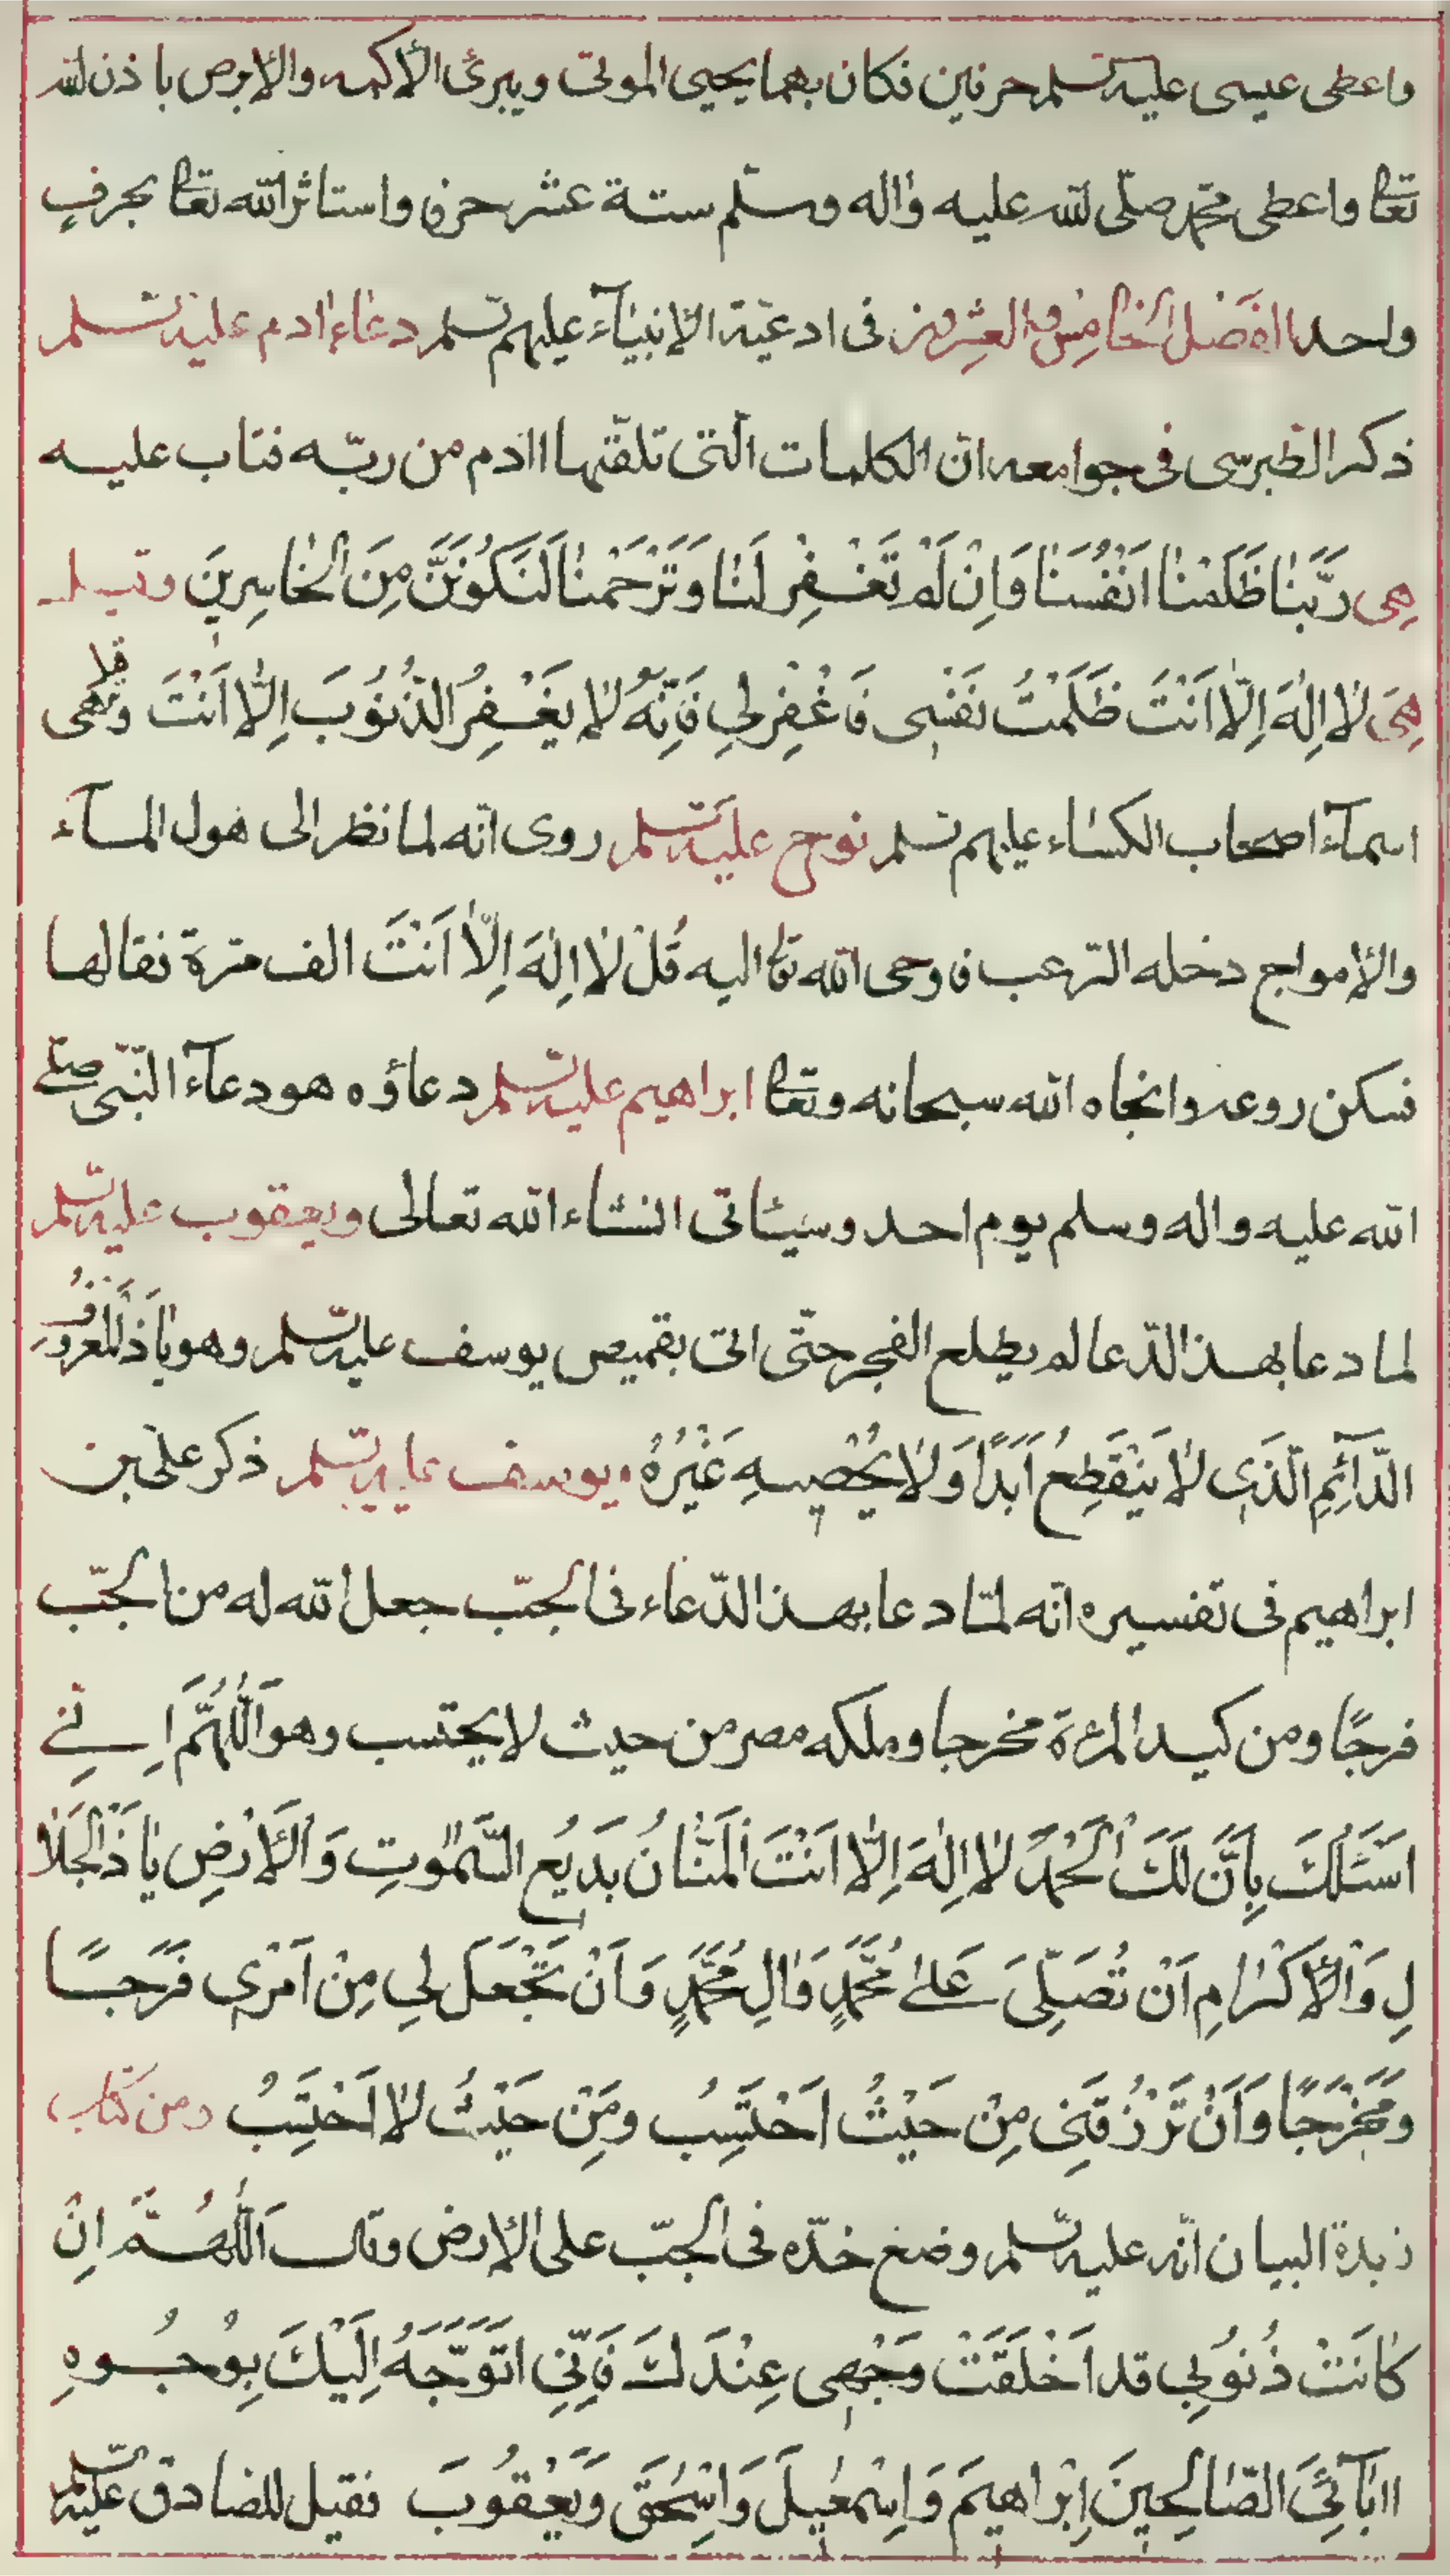 واعطى عيسى عليه السلم حرفين فكان بهما يحيى الموتى ويبرئ الأكمه والابرص باذن لله
تعالى واعطى محمد صلّى لله عليه واله وسلّم ستة عشر حرفا واستاثر الله تعالى بحرفٍ
واحد الفَصْل الخامِسُ والعِشرون فى ادعيَة الانبيٰآء عليهم السّلم دعٰاء اٰدم عليه السّلم
ذكر الطّبرسى فى جوامعه انّ الكلمات الّتى تلقّيها اادم من ربّه فتاب عليه
هِى رَبَّنٰا ظَلَمْنٰا اَنْفُسَنٰا وَاِنْ لَمْ تَغْفِرْ لَنٰا وَتَرْحَمْنٰا لَنَكُوْنَنَّ مِنَ الْخٰاسِرِينَ وقيل
هِىَ لٰا اِلٰهَ اِلّٰا اَنْتَ ظَلَمْتُ نَفْسِى فَاغْفِرْ لِي فَاِنَّهُ لٰا يَغْفِرُ الذُّنُوْبَ اِلّٰا اَنْتَ وقيل هى
اسمآء اصحاب الكسٰاء عليهم السّلم نوح عليه السّلم روى انّه لما نظر الى هول المآء
والامواج دخله الرّعب فاوحى الله تعالى اليه قُلْ لٰا اِلٰهَ اِلّٰا اَنْتَ الف مرّة فقالها
فسكن روعه وانجاه الله سبحانه وتعالى ابراهيم عليه السّلم دعاؤه هو دعآء النّبى صلى
الله عليه واله وسلم يوم احد وسيئاتى انشاء الله تعالى ويعقوب عليه السّلم
لما دعا بهذ الدّعا لم يطلع الفجر حتّى اتى بقميص يوسف عليه السّلم وهو يٰا ذَا الْمَعْرُوْفِ
الدّآئِمِ الَّذِى لٰا يَنْقَطِعُ اَبَدًا وَلٰا يُحْصِيهِ غَيْرُهُ ويوسف عليه السّلم ذكر علىّ بن
ابراهيم فى تفسيره انّه لمّا دعا بهذ الدّعٰاء فى الجبّ جعل الله له من الجبّ
فرجًا ومن كيد المرءة مخرجا وملكه مصر من حيث لا يحتسب وهو اَللّٰهُمَّ اِنّى
اَسْئَلُكَ بِاَنَّ لَكَ الْحَمْدَ لٰا اِلٰهَ اِلّٰا اَنْتَ الْمَنّٰانُ بَدِيْعُ السَّمٰوٰتِ وَالْاَرْضِ يٰا ذَالْجَلٰا
لِ وَالْاِكْرٰامِ اَنْ تُصَلِّىَ عَلىٰ مُحَمَّدٍ وَاٰلِ مُحَمَّدٍ وَاَنْ تَجْعَلَ لِي مِنْ اَمْرِى فَرَجًا
وَمَخْرَجًا وَاَنْ تَرْزُقَنِى مِنْ حَيْثُ اَحْتَسِبُ وَمِنْ حَيْثُ لٰا اَحْتَسِبُ ومن كتاب
زبدة البيان انّه عليه السّلم وضع خدّه فى الجبّ على الارض وقال اَللّٰهُمَّ اِنْ
كٰانَتْ ذُنُوبِي قد اَخْلَقَتْ وَجْهِى عِنْدَكَ فَاِنِّى اَتَوَجَّهُ اِلَيْكَ بِوُجُوهِ
اابٰآئِىَ الصّٰالِحِينَ اِبْراهيمَ وَاِسْمٰعِيلَ وَاِسْحٰقَ وَيَعْقُوبَ فقيل للصٰادق عليه السّلم